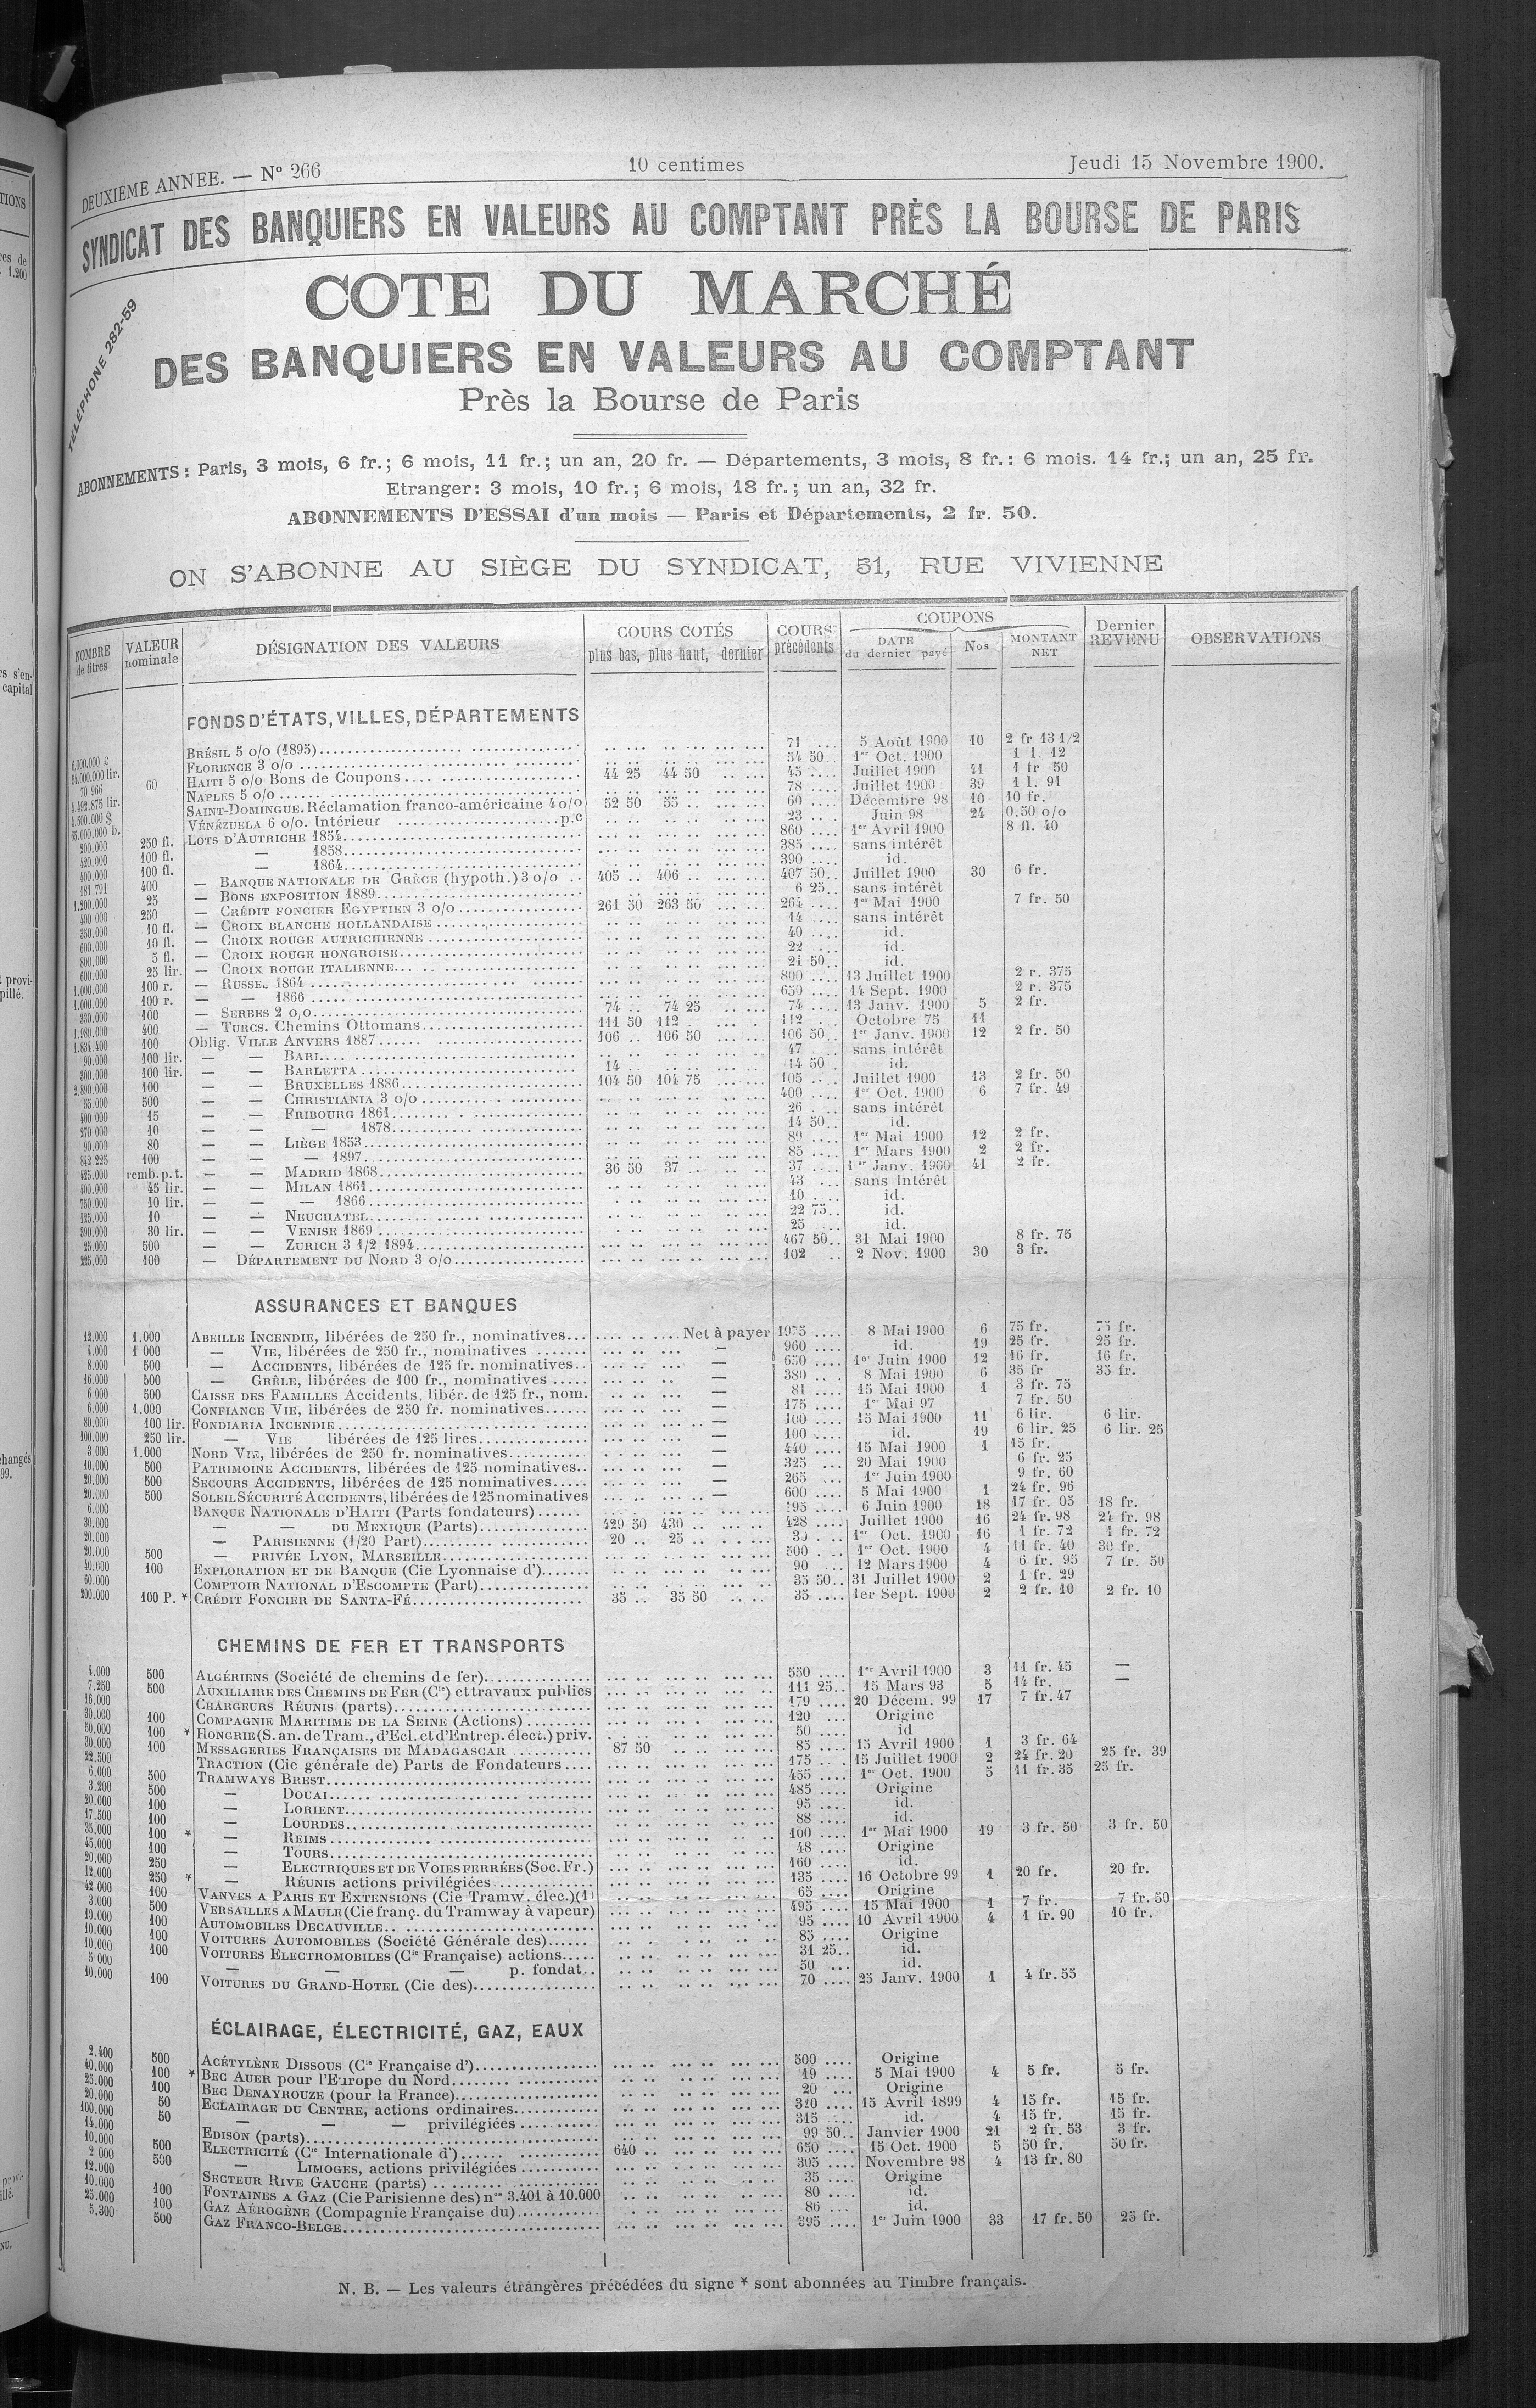 DEUXIEME ANNEE. — N° 266 10 centimes Jeudi 15 Novembre 1900.
SYNDICAT DES BANQUIERS EN VALEURS AU COMPTANT PRÈS LA BOURSE DE PARIS
TÉLÉPHONE 282-59
COTE DU MARCHÉ
DES BANQUIERS EN VALEURS AU COMPTANT
Près la Bourse de Paris
ABONNEMENTS : Paris, 3 mois, 6 fr.; 6 mois, 11 fr.; un an, 20 fr. — Départements, 3 mois, 8 fr.: 6 mois. 14 fr.; un an, 25 fr.
Etranger: 3 mois, 10 fr.; 6 mois, 18 fr.; un an, 32 fr.
ABONNEMENTS D'ESSAI d'un mois — Paris et Départements, 2 fr. 50.
ON S'ABONNE AU SIÈGE DU SYNDICAT, 51, RUE VIVIENNE
NOMBRE de titres VALEUR nominale DÉSIGNATION DES VALEURS COURS COTÉS plus bas, plus haut, dernier COURS précédents COUPONS DATE du dernier payé Nos MONTANT NET Dernier REVENU OBSERVATIONS
FONDS D'ÉTATS, VILLES, DÉPARTEMENTS
6.000.000 £ BRÉSIL 5 o/o (1895) 71 5 Août 1900 10 2 fr 13 1/2
lir. FLORENCE 3 o/o 54 50 1er Oct. 1900 1 l. 12
70 966 60 HAITI 5 o/o Bons de Coupons 44 25 44 50 45 Juillet 1900 41 1 fr 50
4.492.875 lir. NAPLES 5 o/o 78 Juillet 1900 39 1 l. 91
4.500.000 $ SAINT-DOMINGUE. Réclamation franco-américaine 4 o/o 52 50 55 60 Décembre 98 10 10 fr.
65.000.000 b. VÉNÉZUELA 6 o/o. Intérieur p.c 23 Juin 98 24 0.50 o/o
200.000 250 fl. LOTS D'AUTRICHE 1854 860 1er Avril 1900 8 fl. 40
420.000 100 fl. — 1858 385 sans intérêt
400.000 100 fl. — 1864 390 id.
181.791 400 — BANQUE NATIONALE DE GRÈCE (hypoth.) 3 o/o 405 406 407 50 Juillet 1900 30 6 fr.
1.200.000 25 — BONS EXPOSITION 1889 6 25 sans intérêt
400 000 250 — CRÉDIT FONCIER EGYPTIEN 3 o/o 261 50 263 50 264 1er Mai 1900 7 fr. 50
350.000 10 fl. — CROIX BLANCHE HOLLANDAISE 14 sans intérêt
600.000 10 fl. — CROIX ROUGE AUTRICHIENNE 40 id.
800.000 5 fl. — CROIX ROUGE HONGROISE 22 id.
600.000 25 lir. — CROIX ROUGE ITALIENNE 21 50 id.
1.000.000 100 r. — RUSSE. 1864 800 13 Juillet 1900 2 r. 375
1.000.000 100 r. — — 1866 650 14 Sept. 1900 2 r. 375
330.000 100 — SERBES 2 o/o 74 74 25 74 13 Janv. 1900 5 2 fr.
1.980.000 400 — TURCS. Chemins Ottomans 111 50 112 112 Octobre 75 11
1.834.400 100 Oblig. VILLE ANVERS 1887 106 106 50 106 50 1er Janv. 1900 12 2 fr. 50
90.000 100 lir. — — BARI 47 sans intérêt
300.000 100 lir. — — BARLETTA 14 14 50 id.
2.890.000 100 — — BRUXELLES 1886 104 50 104 75 105 Juillet 1900 13 2 fr. 50
55.000 500 — — CHRISTIANIA 3 o/o 400 1er Oct. 1900 6 7 fr. 49
400 000 15 — — FRIBOURG 1861 26 sans intérêt
270 000 10 — — — 1878 14 50 id.
90.000 80 — — LIÈGE 1853 89 1er Mai 1900 12 2 fr.
842 225 100 — — — 1897 85 1er Mars 1900 2 2 fr.
425.000 remb. p. t. — — MADRID 1868 36 50 37 37 1er Janv. 1900 41 2 fr.
400.000 45 lir. — — MILAN 1861 43 sans intérêt
750.000 10 lir. — — — 1866 10 id.
125.000 10 — — NEUCHATEL 22 75 id.
390.000 30 lir. — — VENISE 1869 25 id.
25.000 500 — — ZURICH 3 1/2 1894 467 50 31 Mai 1900 8 fr. 75
225.000 100 — DÉPARTEMENT DU NORD 3 o/o 102 2 Nov. 1900 30 3 fr.
ASSURANCES ET BANQUES
12.000 1.000 ABEILLE INCENDIE, libérées de 250 fr., nominatives Net à payer 1975 8 Mai 1900 6 75 fr. 75 fr.
4.000 1 000 — VIE, libérées de 250 fr., nominatives — 960 id. 19 25 fr. 25 fr.
8.000 500 — ACCIDENTS, libérées de 125 fr. nominatives — 650 1er Juin 1900 12 16 fr. 16 fr.
16.000 500 — GRÊLE, libérées de 100 fr., nominatives — 380 8 Mai 1900 6 35 fr 35 fr.
6.000 500 CAISSE DES FAMILLES Accidents, libér. de 125 fr., nom. — 81 15 Mai 1900 1 3 fr. 75
6.000 1.000 CONFIANCE VIE, libérées de 250 fr. nominatives — 175 1er Mai 97 7 fr. 50
80.000 100 lir. FONDIARIA INCENDIE — 100 15 Mai 1900 11 6 lir. 6 lir.
100.000 250 lir. — VIE libérées de 125 lires — 100 id. 19 6 lir. 25 6 lir. 25
3 000 1.000 NORD VIE, libérées de 250 fr. nominatives — 440 15 Mai 1900 1 15 fr.
10.000 500 PATRIMOINE ACCIDENTS, libérées de 125 nominatives — 325 20 Mai 1900 6 fr. 25
20.000 500 SECOURS ACCIDENTS, libérées de 125 nominatives — 265 1er Juin 1900 9 fr. 60
20.000 500 SOLEIL SÉCURITÉ ACCIDENTS, libérées de 125 nominatives — 600 5 Mai 1900 1 24 fr. 96
6.000 BANQUE NATIONALE D'HAITI (Parts fondateurs) 195 6 Juin 1900 18 17 fr. 05 18 fr.
30.000 — — DU MEXIQUE (Parts) 429 50 430 428 Juillet 1900 16 24 fr. 98 24 fr. 98
20.000 — PARISIENNE (1/20 Part) 20 25 30 1er Oct. 1900 16 1 fr. 72 1 fr. 72
20.000 500 — PRIVÉE LYON, MARSEILLE 500 1er Oct. 1900 4 11 fr. 40 30 fr.
40.000 100 EXPLORATION ET DE BANQUE (Cie Lyonnaise d') 90 12 Mars 1900 4 6 fr. 95 7 fr. 50
60.000 COMPTOIR NATIONAL D'ESCOMPTE (Part) 35 50 31 Juillet 1900 2 1 fr. 29
200.000 100 P. * CRÉDIT FONCIER DE SANTA-FÉ 35 35 50 35 1er Sept. 1900 2 2 fr. 10 2 fr. 10
CHEMINS DE FER ET TRANSPORTS
4.000 500 ALGÉRIENS (Société de chemins de fer) 550 1er Avril 1900 3 11 fr. 45 —
7.250 500 AUXILIAIRE DES CHEMINS DE FER (Cie) et travaux publics 111 25 15 Mars 93 5 14 fr. —
16.000 CHARGEURS RÉUNIS (parts) 179 20 Décem. 99 17 7 fr. 47
30.000 100 COMPAGNIE MARITIME DE LA SEINE (Actions) 120 Origine
50.000 100 * HONGRIE (S. an. de Tram., d'Ecl. et d'Entrep. élect.) priv. 50 id
30.000 100 MESSAGERIES FRANÇAISES DE MADAGASCAR 87 50 85 15 Avril 1900 1 3 fr. 64
22.500 TRACTION (Cie générale de) Parts de Fondateurs 175 15 Juillet 1900 2 24 fr. 20 25 fr. 39
6.000 500 TRAMWAYS BREST 455 1er Oct. 1900 5 11 fr. 35 25 fr.
3.200 500 — DOUAI 485 Origine
20.000 100 — LORIENT 95 id.
17.500 100 — LOURDES 88 id.
35.000 100 * — REIMS 100 1er Mai 1900 19 3 fr. 50 3 fr. 50
45.000 100 — TOURS 48 Origine
20.000 250 — ELECTRIQUES ET DE VOIES FERRÉES (Soc. Fr.) 160 id.
12.000 250 * — RÉUNIS actions privilégiées 135 16 Octobre 99 1 20 fr. 20 fr.
42 000 100 VANVES A PARIS ET EXTENSIONS (Cie Tramw. élec.) (1) 65 Origine
3.000 500 VERSAILLES A MAULE (Cie franç. du Tramway à vapeur) 495 15 Mai 1900 1 7 fr. 7 fr. 50
19.000 100 AUTOMOBILES DECAUVILLE 95 10 Avril 1900 4 1 fr. 90 10 fr.
10.000 100 VOITURES AUTOMOBILES (Société Générale des) 85 Origine
10.000 100 VOITURES ELECTROMOBILES (Cie Française) actions 31 25 id.
5 000 — — — p. fondat. 50 id.
10.000 100 VOITURES DU GRAND-HOTEL (Cie des) 70 25 Janv. 1900 1 4 fr. 55
ÉCLAIRAGE, ÉLECTRICITÉ, GAZ, EAUX
2.400 500 ACÉTYLÈNE DISSOUS (Cie Française d') 500 Origine
40.000 100 * BEC AUER pour l'Europe du Nord 49 5 Mai 1900 4 5 fr. 5 fr.
25.000 100 BEC DENAYROUZE (pour la France) 20 Origine
20.000 50 ECLAIRAGE DU CENTRE, actions ordinaires 320 15 Avril 1899 4 15 fr. 15 fr.
100.000 50 — — — privilégiées 315 id. 4 15 fr. 15 fr.
14.000 EDISON (parts) 99 50 Janvier 1900 21 2 fr. 53 3 fr.
10.000 500 ELECTRICITÉ (Cie Internationale d') 640 650 15 Oct. 1900 5 50 fr. 50 fr.
2 000 500 — LIMOGES, actions privilégiées 305 Novembre 98 4 13 fr. 80
12.000 SECTEUR RIVE GAUCHE (parts) 35 Origine
10.000 100 FONTAINES A GAZ (Cie Parisienne des) nos 3.401 à 10.000 80 id.
25.000 100 GAZ AÉROGÈNE (Compagnie Française du) 86 id.
5,300 500 GAZ FRANCO-BELGE 395 1er Juin 1900 33 17 fr. 50 25 fr.
N. B. — Les valeurs étrangères précédées du signe * sont abonnées au Timbre français.